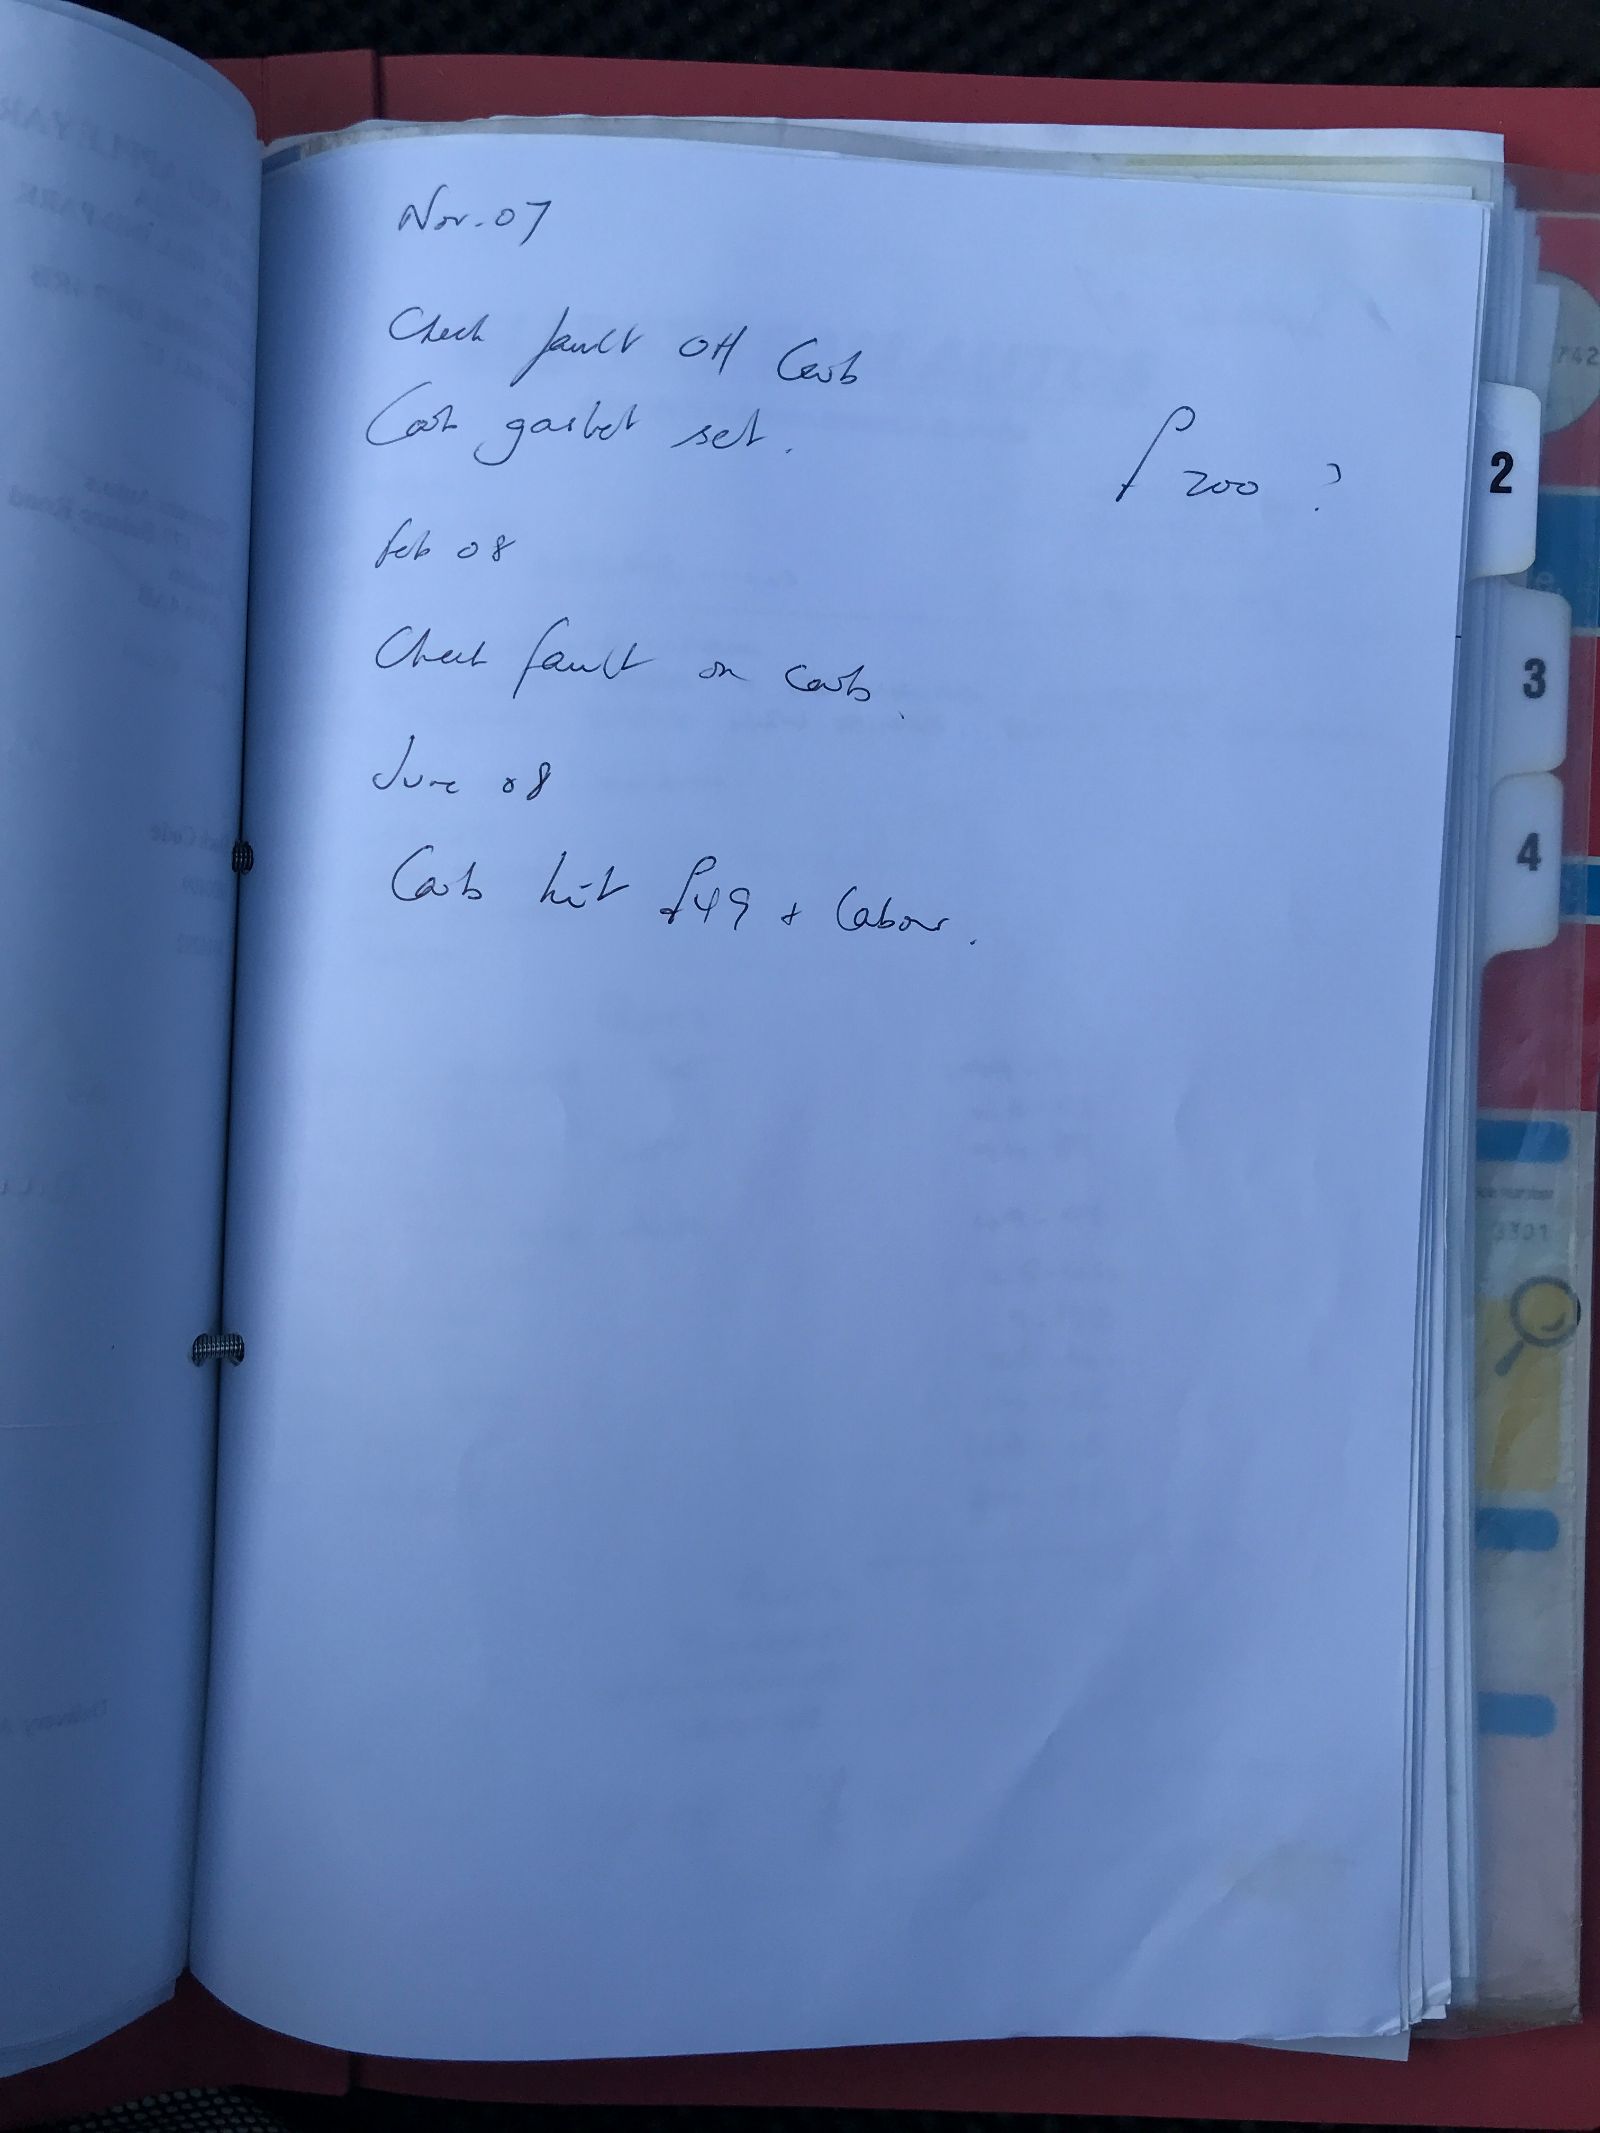 Nov. 07
Check fault OH Carb
Carb gasket set.
£200 ?
Feb 08
Check fault on Carb.
June 08
Carb kit £49 + Labour.
2
3
4
742
3301